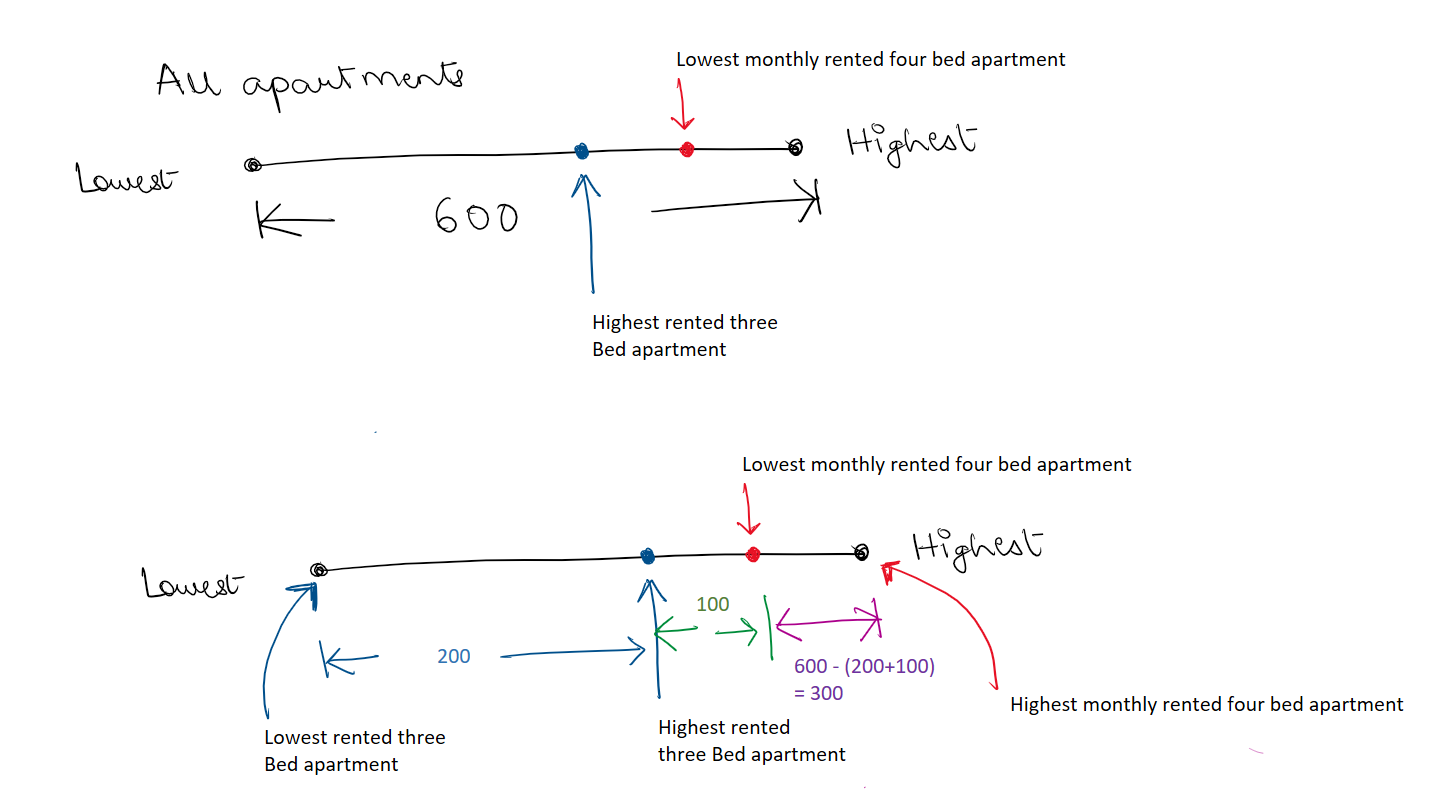 Lowest monthly rented four bed apartment
All apartments
Highest
Lowest
600
Highest rented three
Bed apartment
Lowest monthly rented four bed apartment
Highest
Lowest
100
200
600 - (200+100)
= 300
Highest monthly rented four bed apartment
Highest rented
three Bed apartment
Lowest rented three
Bed apartment